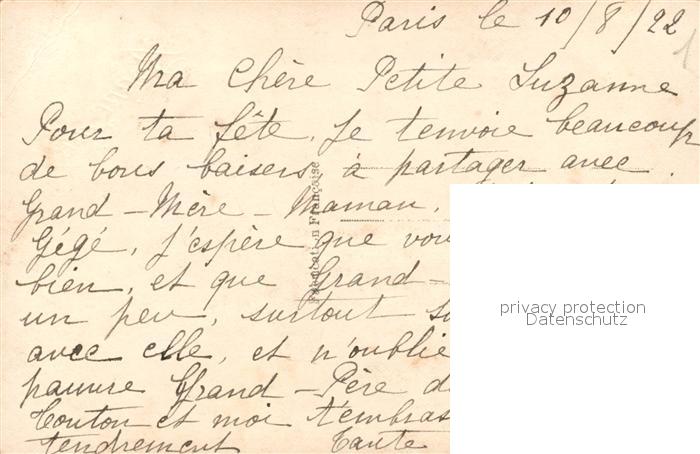 Paris le 10/8/22
1
Ma Chère Petite Suzanne
Pour ta fête, je t'envoie beaucoup
de bons baisers, à partager avec
Grand-Mère-Maman,
Gégé, j'espère que vou
bien, et que Grand-
un peu, surtout
avec elle, et n'oublie
pauvre Grand-Père d
Tonton et moi t'embras
tendrement Tante
Fabrication Française
privacy protection
Datenschutz